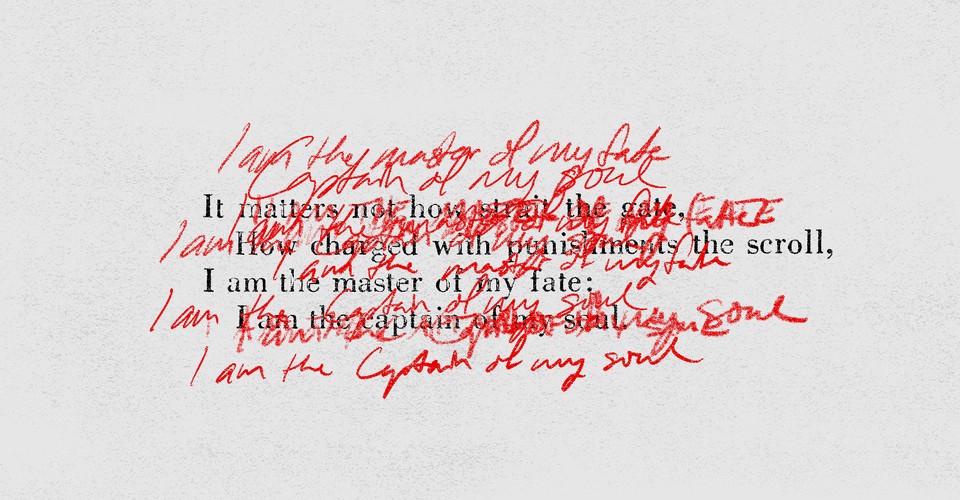 I am the master of my fate
Captain of my soul
It matters not how strait the gate,
FATE
I am
How charged with punishments the scroll,
I am the master of my fate
I am the master of my fate:
I am the Captain of my soul
I am the captain of my soul.
my Soul
I am the Captain of my soul